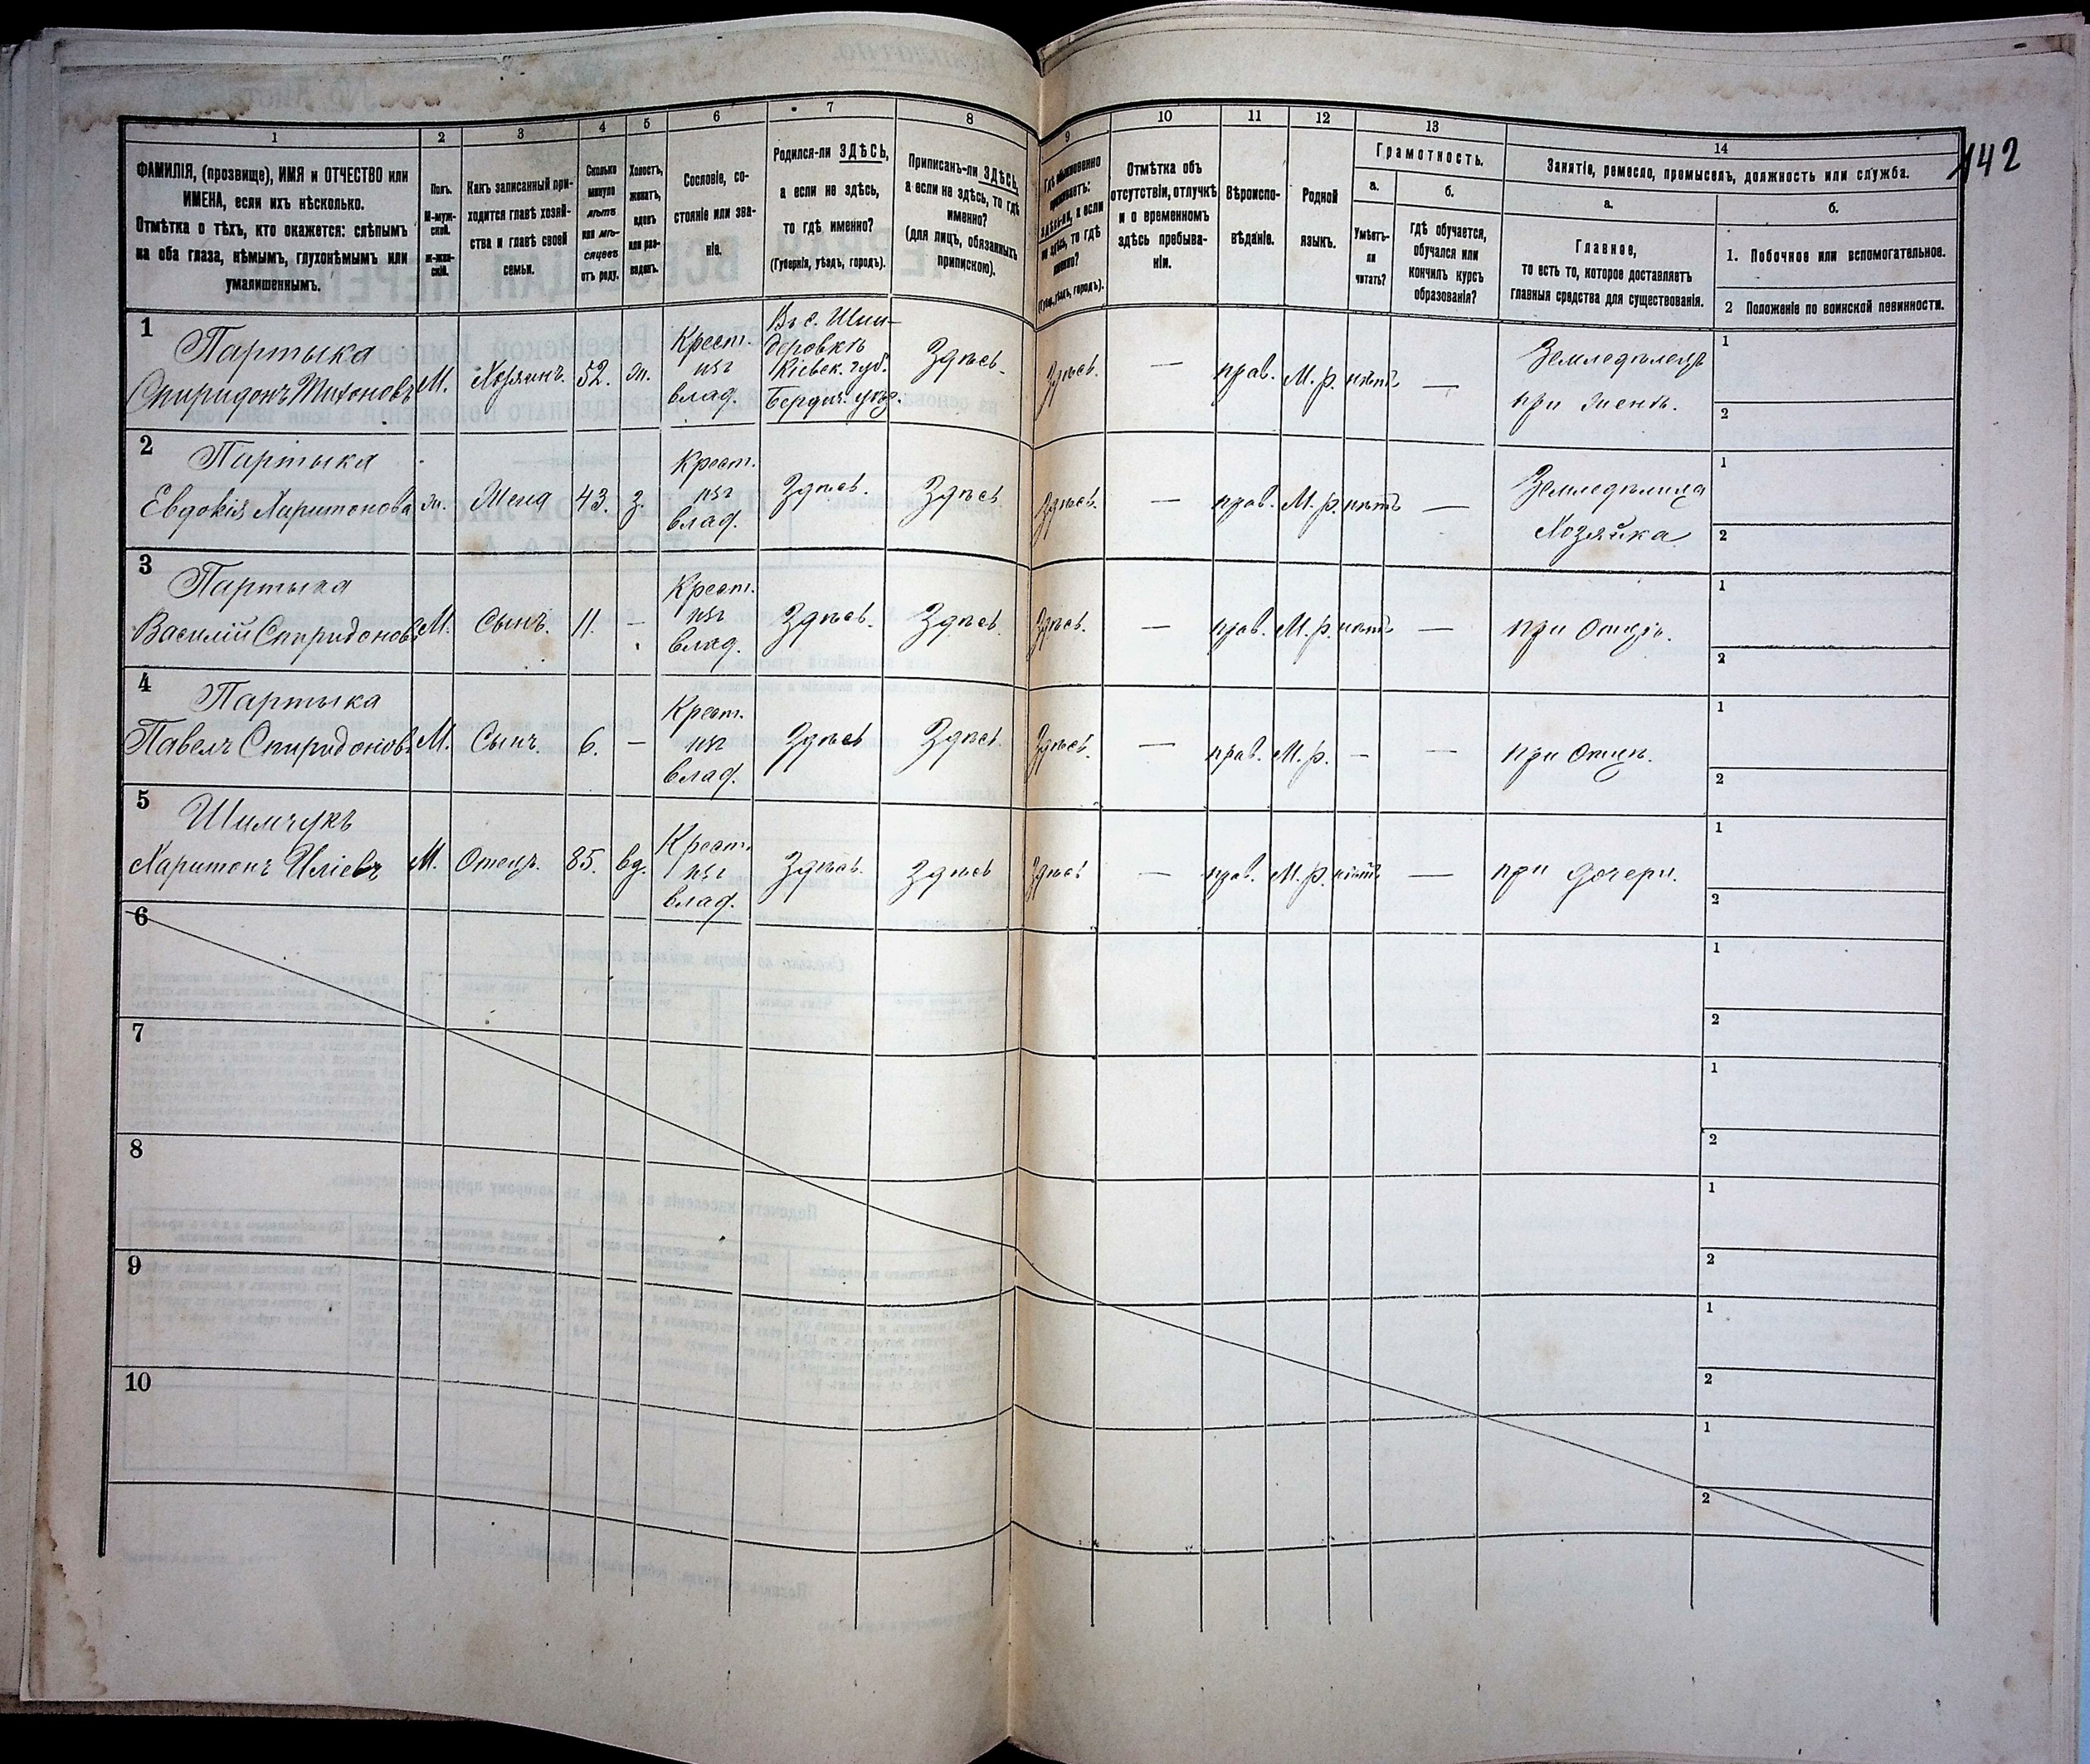 142
1
2
3
4
5
6
7
8
9
10
11
12
13
14
ФАМИЛІЯ, (прозвище), ИМЯ и ОТЧЕСТВО или
ИМЕНА, если ихъ нѣсколько.
Отмѣтка о тѣхъ, кто окажется: слѣпымъ
на оба глаза, нѣмымъ, глухонѣмымъ или
умалишеннымъ.
Полъ.
М-муж-
ской.
ж-жен-
скій.
Какъ записанный при-
ходится главѣ хозяй-
ства и главѣ своей
семьи.
Сколько
минуло
лѣтъ
или мѣ-
сяцевъ
отъ роду.
Холостъ,
женатъ,
вдовъ
или раз-
веденъ.
Сословіе, со-
стояніе или зва-
ніе.
Родился-ли ЗДѢСЬ,
а если не здѣсь,
то гдѣ именно?
(Губернія, уѣздъ, городъ).
Приписанъ-ли ЗДѢСЬ,
а если не здѣсь, то гдѣ
именно?
(для лицъ, обязанныхъ
припискою).
Гдѣ обыкновенно
проживаетъ:
здѣсь-ли, а если
не здѣсь, то гдѣ
именно?
(Губ., уѣздъ, городъ).
Отмѣтка объ
отсутствіи, отлучкѣ
и о временномъ
здѣсь пребыва-
ніи.
Вѣроиспо-
вѣданіе.
Родной
языкъ.
Грамотность.
а.
б.
Умѣетъ-
ли
читать?
гдѣ обучается,
обучался или
кончилъ курсъ
образованія?
Занятіе, ремесло, промыселъ, должность или служба.
а.
б.
Главное,
то есть то, которое доставляетъ
главныя средства для существованія.
1. Побочное или вспомогательное.
2 Положеніе по воинской повинности.
1
Партыка
Спиридонъ Тихоновъ
М.
Хозяинъ.
52.
ж.
Крест.
изъ
влад.
Въ с. Шен-
деровкѣ
Кіевск. губ.
Бердич. уѣз.
Здѣсь.
Здѣсь.
—
прав.
М. р.
нѣтъ
—
Земледѣлецъ
при женѣ.
1
2
2
Партыка
Евдокія Харитонова
ж.
Жена
43.
з.
Крест.
изъ
влад.
Здѣсь.
Здѣсь
Здѣсь.
—
прав.
М. р.
нѣтъ
—
Земледѣлица
Хозяйка
1
2
3
Партыка
Василій Спиридоновъ
М.
Сынъ.
11.
—
Крест.
изъ
влад.
Здѣсь.
Здѣсь.
Здѣсь.
—
прав.
М. р.
нѣтъ
—
при Отцѣ.
1
2
4
Партыка
Павелъ Спиридоновъ
М.
Сынъ.
6.
—
Крест.
изъ
влад.
Здѣсь
Здѣсь.
Здѣсь.
—
прав.
М. р.
—
—
при Отцѣ.
1
2
5
Шимчукъ
Харитонъ Иліевъ
М.
Отецъ.
85.
вд.
Крест.
изъ
влад.
Здѣсь.
Здѣсь
Здѣсь
—
прав.
М. р.
нѣтъ
—
при дочери.
1
2
6
1
2
7
1
2
8
1
2
9
1
2
10
1
2